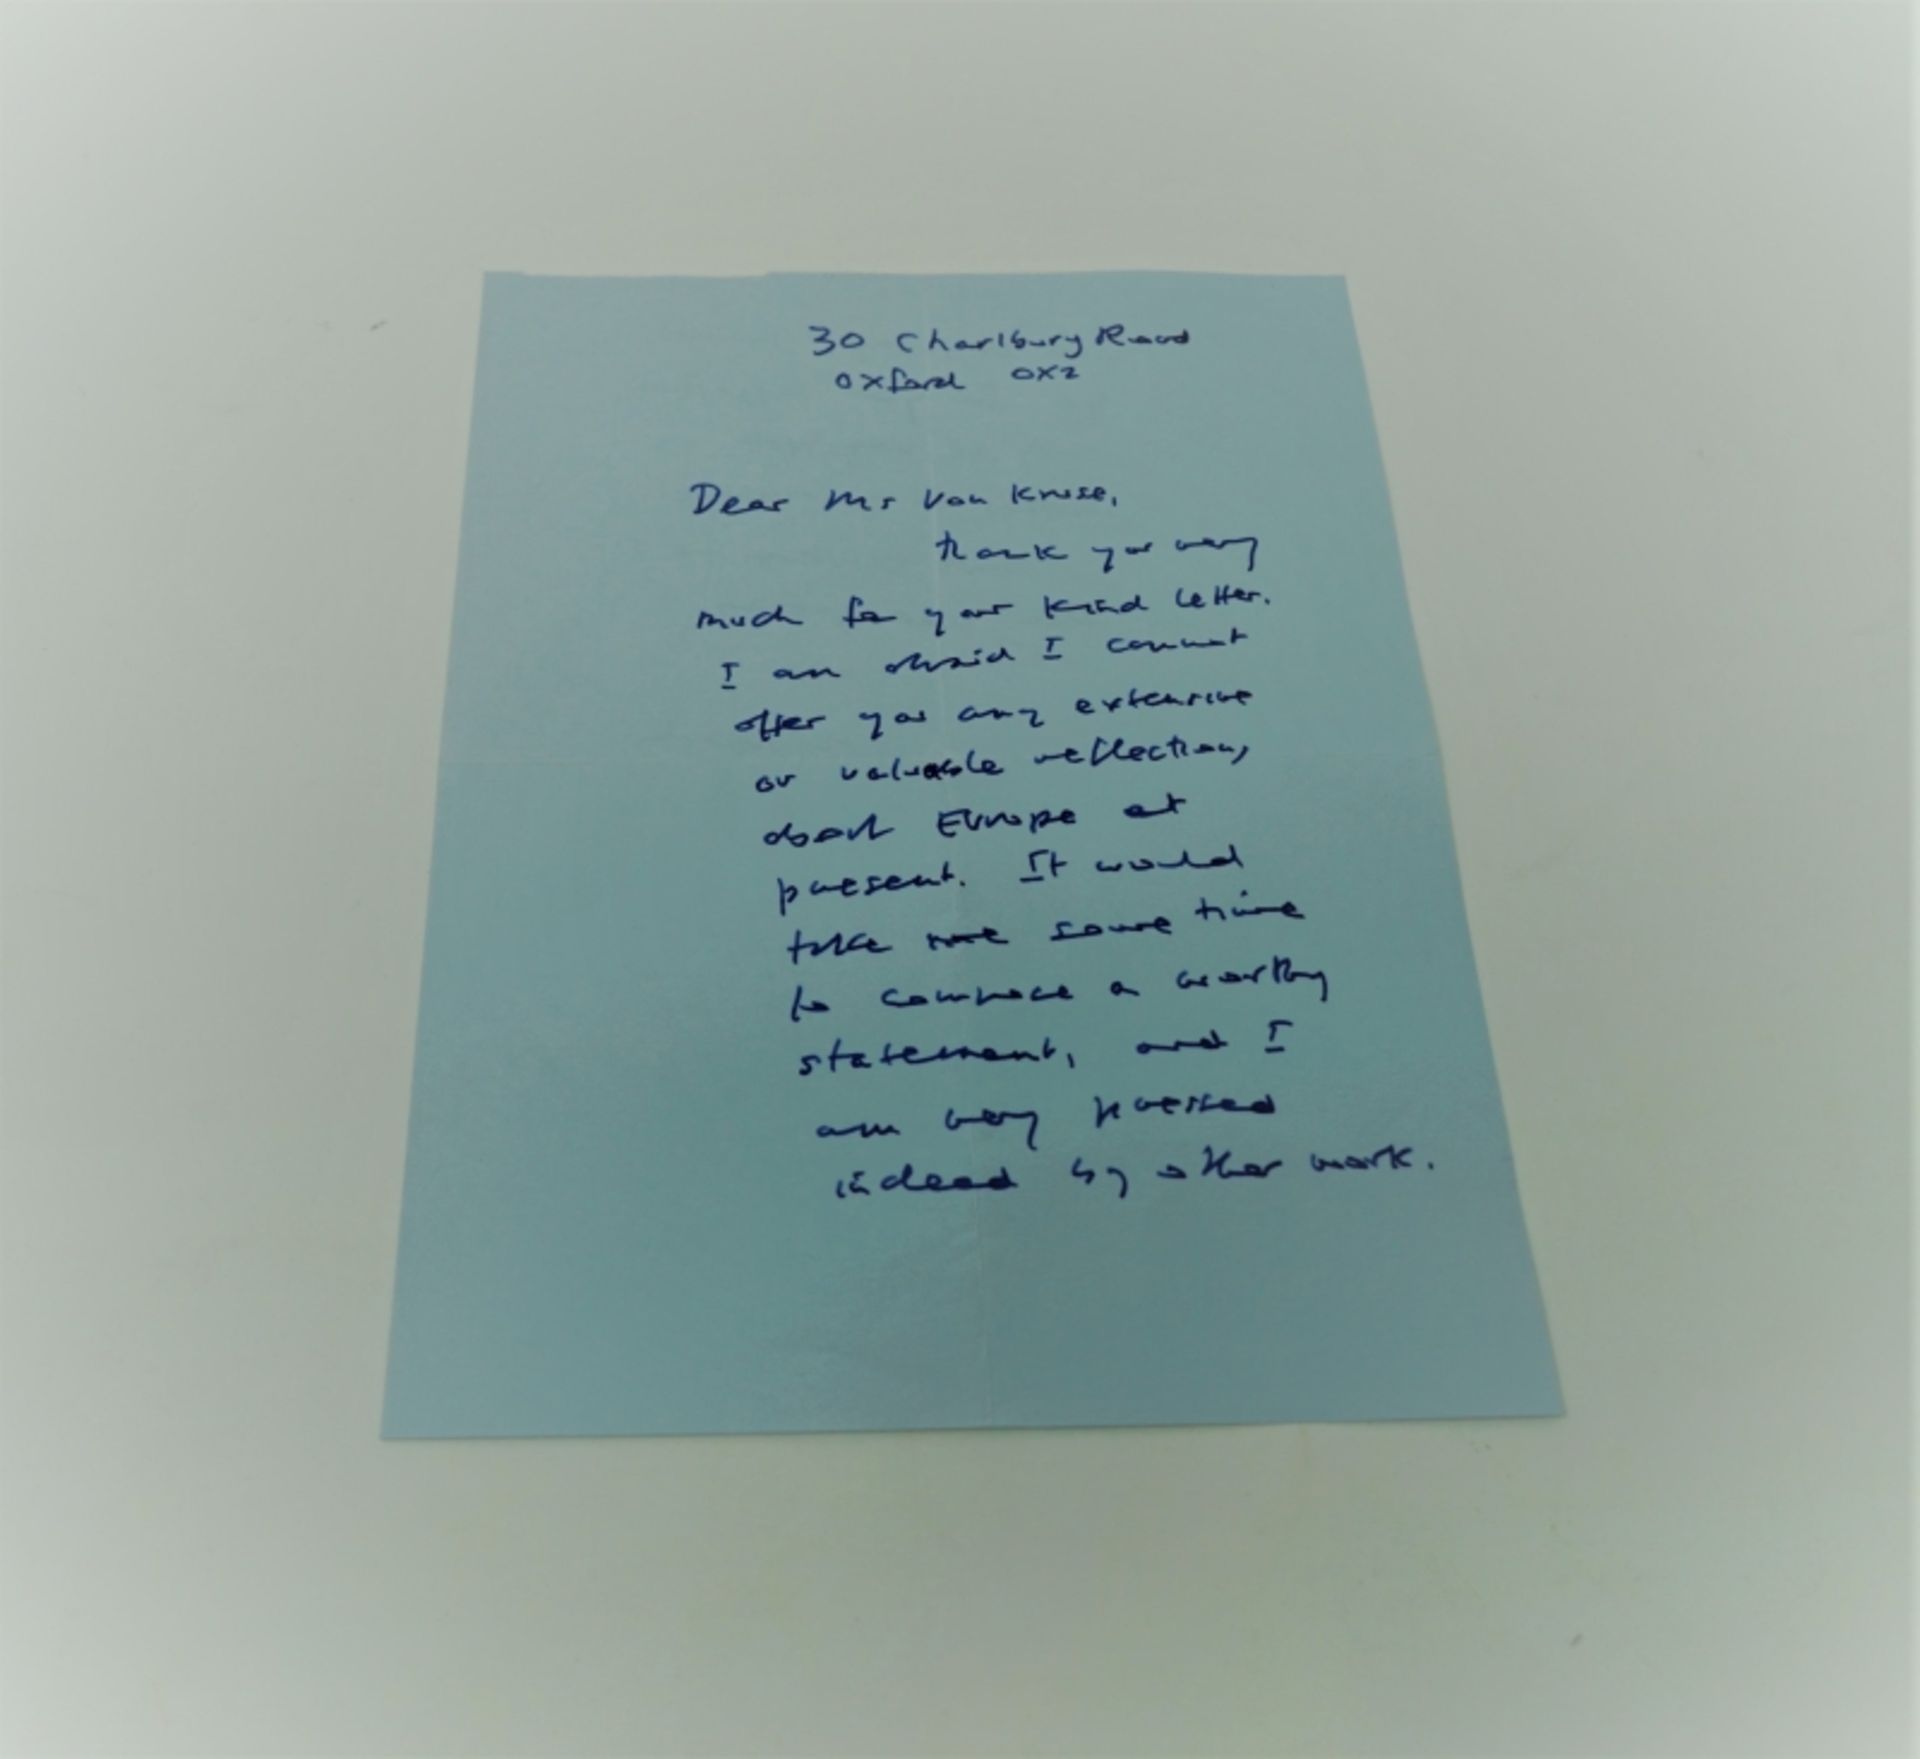 30 Charlbury Road
Oxford OX2
Dear Mr Von Kruse,
thank you very
much for your kind letter.
I am afraid I cannot
offer you any extensive
or valuable reflections
about Europe at
present. It would
take me some time
to compose a worthy
statement, and I
am very pressed
indeed by other work.